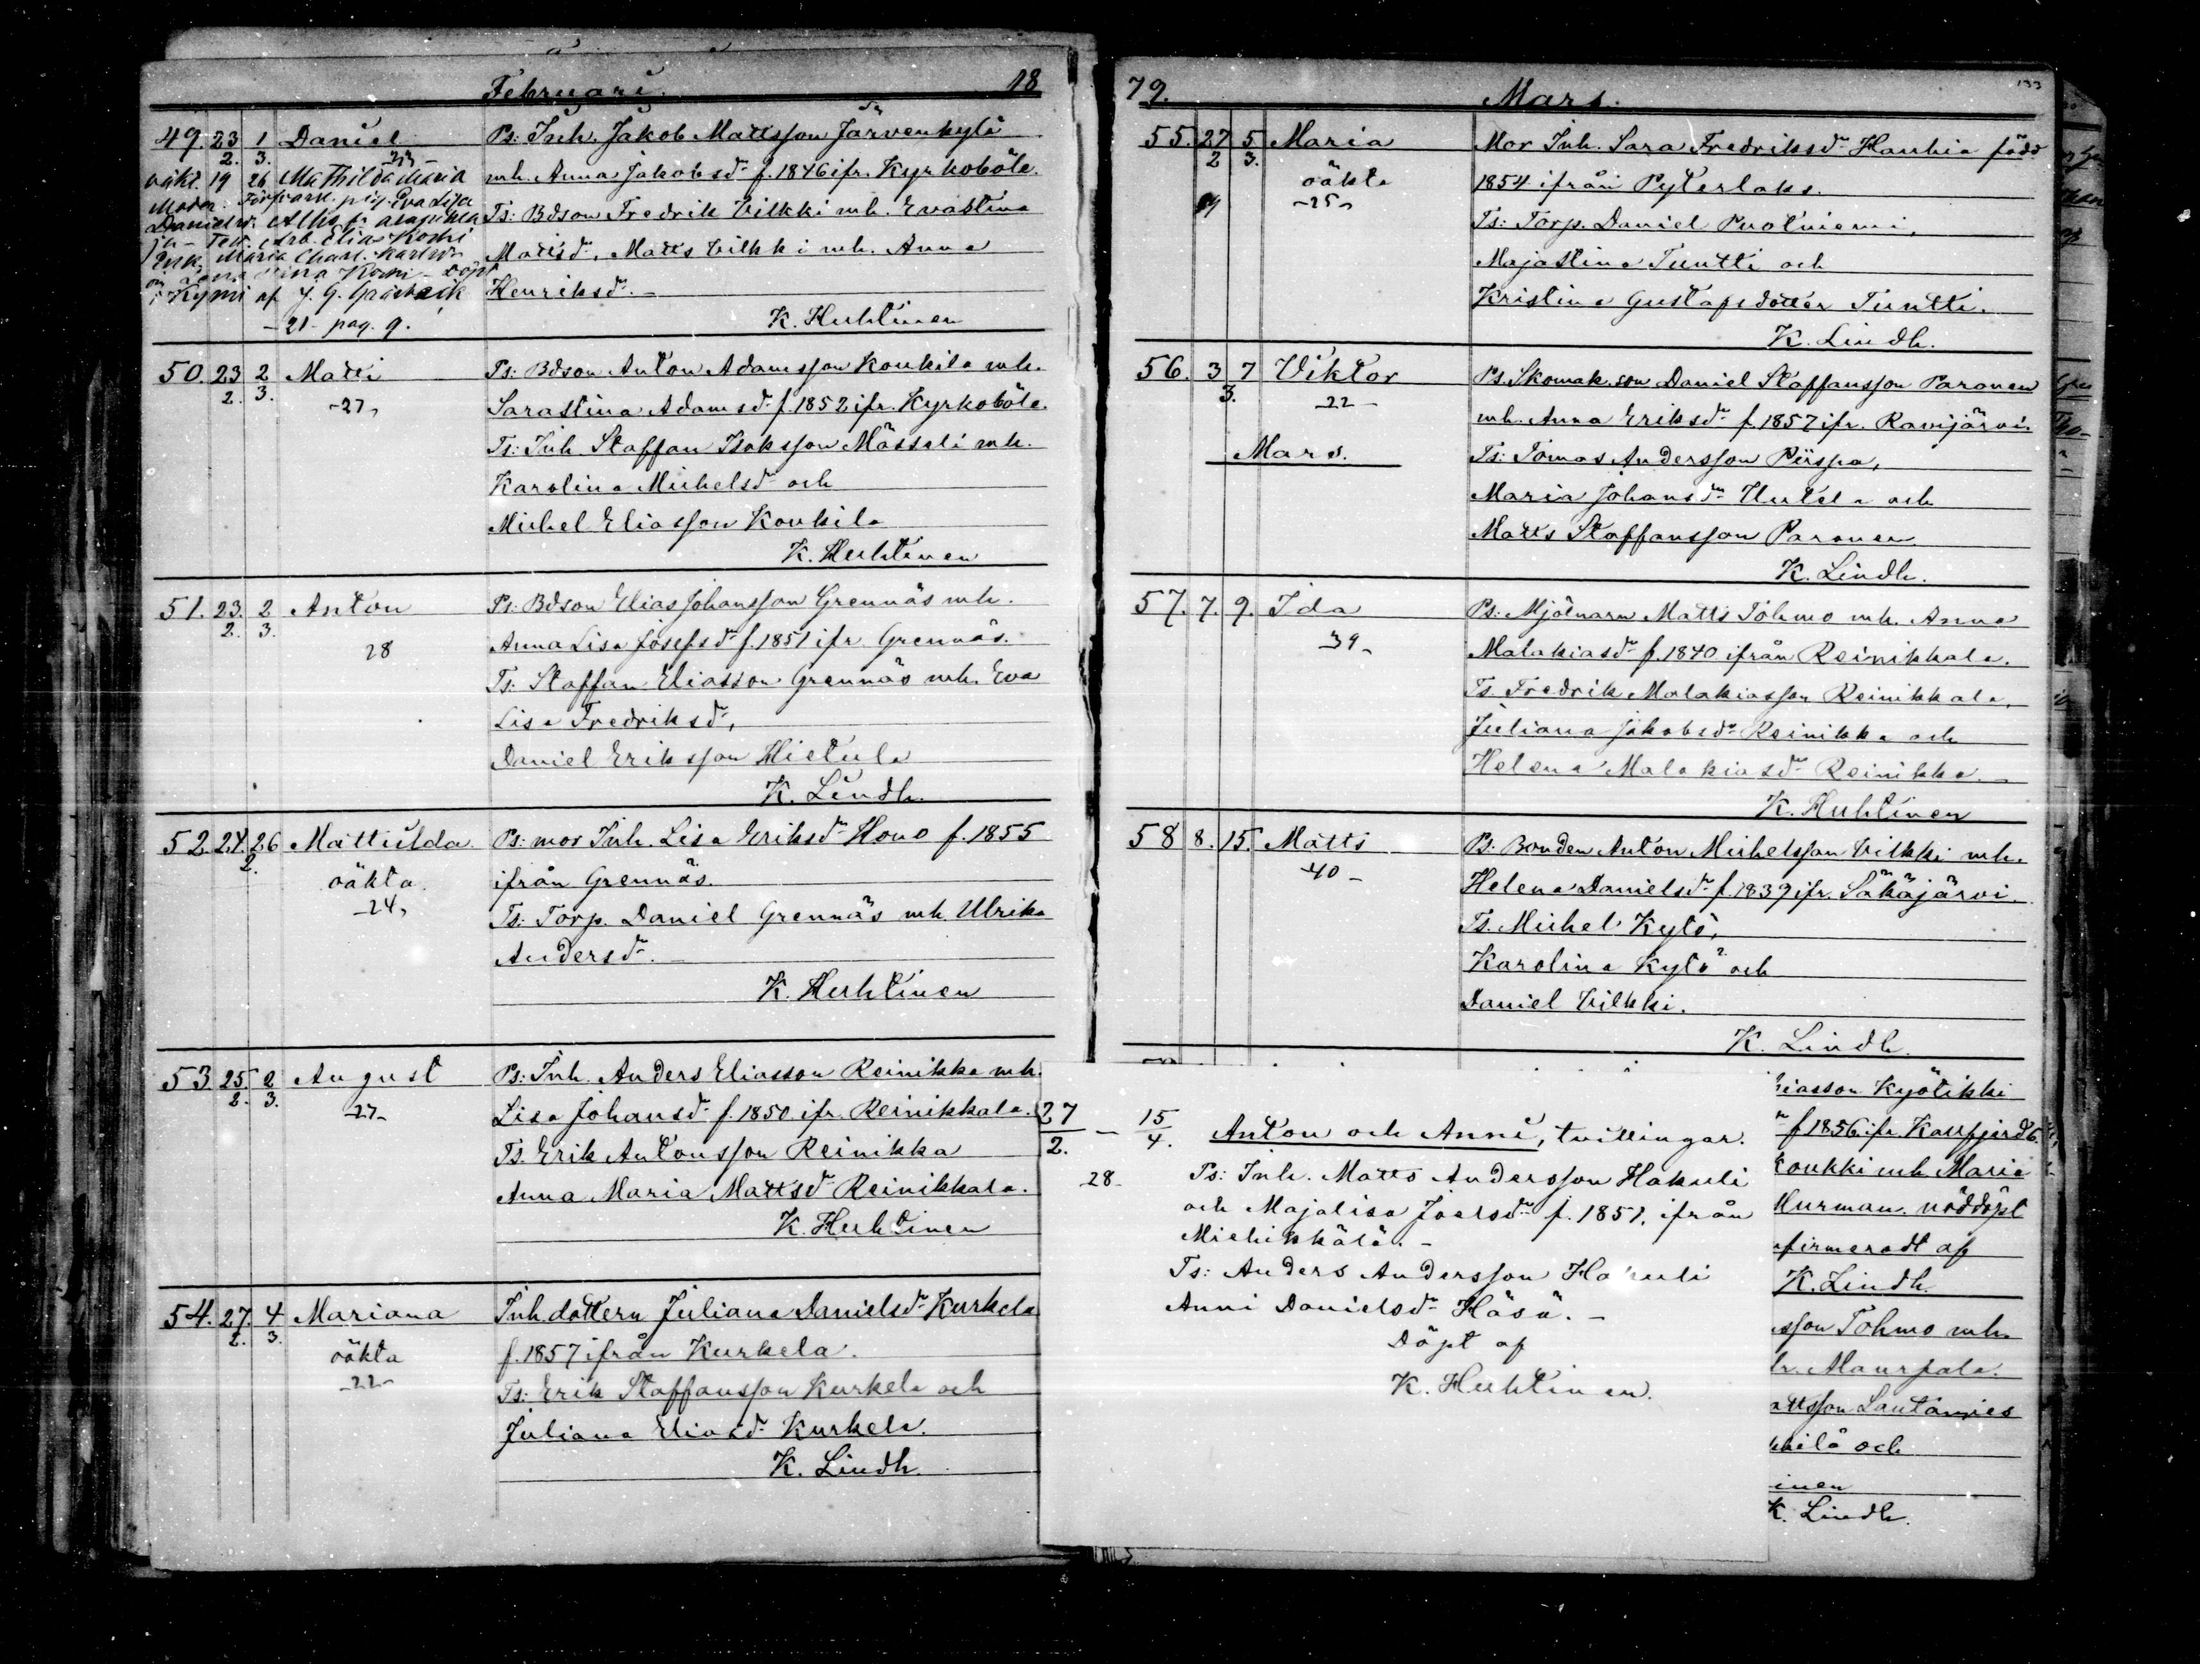 Februari. 18
49. 23 1 Daniel Ps: Inh. Jakob Mattsson Järvenkylä
2. 3. mh. Anna Jakobsdr f. 1846 ifr. Kyrkoböle.
19 26 Mathilda Maria Ts: Bdson Fredrik Vilkki mh. Evastina
Moder. pig. Eva Lisa Mattsd. Matts Vilkki mh. Anna
Danielsd. Henriksdr.
Arb. Elias Koski
Maria Charl.
i Kymi af J. G.
-21- pag. 9. K. Huhtinen
50. 23 2 Matti Ps: Bdson Anton Adamsson Koukila mh.
2. 3. -27- Sarastina Adamsdr f. 1852 ifr. Kyrkoböle.
Ts: Inh. Staffan Isaksson Mässeli mh.
Karolina Michelsdr och
Michel Eliasson Koukila
K. Huhtinen
51. 23. 2 Anton Ps: Bdson Elias Johansson Grennäs mh.
2. 3. 28 Anna Lisa Josefsdr f. 1851 ifr Grennäs.
Ts: Staffan Eliasson Grennäs mh. Eva
Lisa Fredriksdr,
Daniel Eriksson Hietula
K. Lindh.
52. 24. 26 Mattilda Ps: mor Inh. Lisa Eriksdr Hovo f. 1855
2. oäkta. ifrån Grennäs.
-24- Ts: Torp. Daniel Grennäs mh. Ulrika
Andersdr.
K. Huhtinen
53 25. 2 August Ps: Inh. Anders Eliasson Reinikka mh.
2. 3. -27- Lisa Johansdr f. 1850 ifr. Reinikkala.
Ts. Erik Antonsson Reinikka
Anna Maria Mattsdr Reinikkala.
K. Huhtinen
54. 27. 4 Mariana Inh. dottern Juliana Danielsdr Kurkela
2. 3. oäkta f. 1857 ifrån Kurkela.
-22- Ts: Erik Staffansson Kurkela och
Juliana Eliasdr Kurkela.
K. Lindh.
79. Mars. 133
55. 27 5. Maria Mor Inh. Sara Fredriksdr Hauhia född
2 3. oäkta 1854 ifrån Pyterlaks.
-25- Ts: Torp. Daniel Puotniemi,
Majastina Tuntti och
Kristina Gustafsdotter Tuntti.
K. Lindh.
56. 3 7 Viktor Ps. Skomak. son Daniel Staffansson Paronen
3. -22- mh. Anna Eriksdr f. 1857 ifr. Ravijärvi.
Mars. Ts: Tomas Andersson Piispa,
Maria Johansdr Hutela och
Matts Staffansson Paronen
K. Lindh.
57. 7. 9. Ida Ps: Mjölnarn Matts Tohmo mh. Anna
39- Malakiasdr f. 1840 ifrån Reinikkala.
Ts. Fredrik Malakiasson Reinikkala,
Juliana Jakobsdr Reinikka och
Helena Malakiasdr Reinikka.
K. Huhtinen
58 8. 15. Matts Ps. Bonden Anton Michelsson Vilkki mh.
-40- Helena Danielsdr f. 1839 ifr. Säkäjärvi.
Ts. Michel Kytö,
Karolina Kytö och
Daniel Vilkki.
K. Lindh.
27/2. - 15/4. Anton och Anni, tvillingar.
-28- Ps: Inh. Matts Andersson Hakuli
och Majalisa Joelsdr f. 1851, ifrån
Miehikkälä. -
Ts: Anders Andersson Hakuli
Anni Danielsdr Häsä. -
Döpt af
K. Huhtinen.
iasson Kyötikki
f 1856 ifr.
Koukki mh Maria
Hurman. nöddöpt
firmeradt af
K. Lindh.
sson Tohmo mh.
Maurpala.
attsson Lautamies
kilä och
inen
K. Lindh.